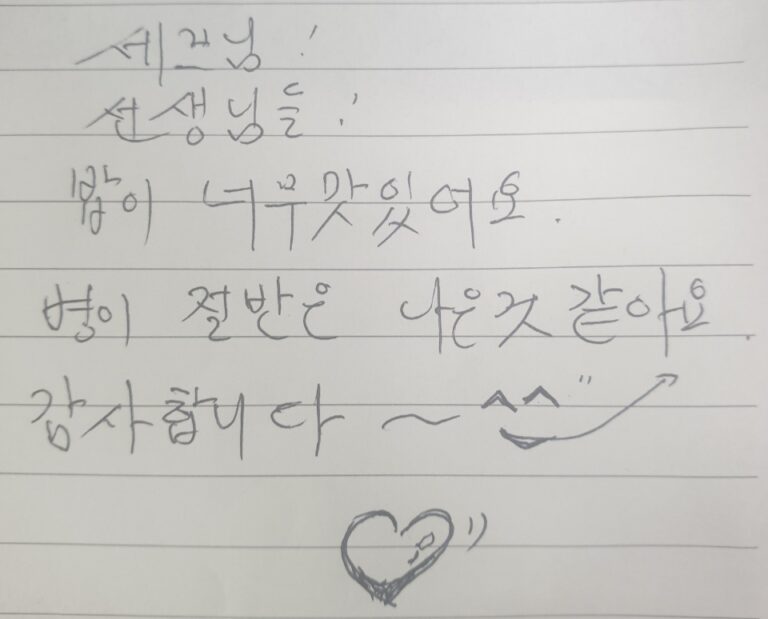 세프님!
선생님들!
밥이 너무맛있어요.
병이 절반은 나은것 같아요.
감사합니다~ ^^"